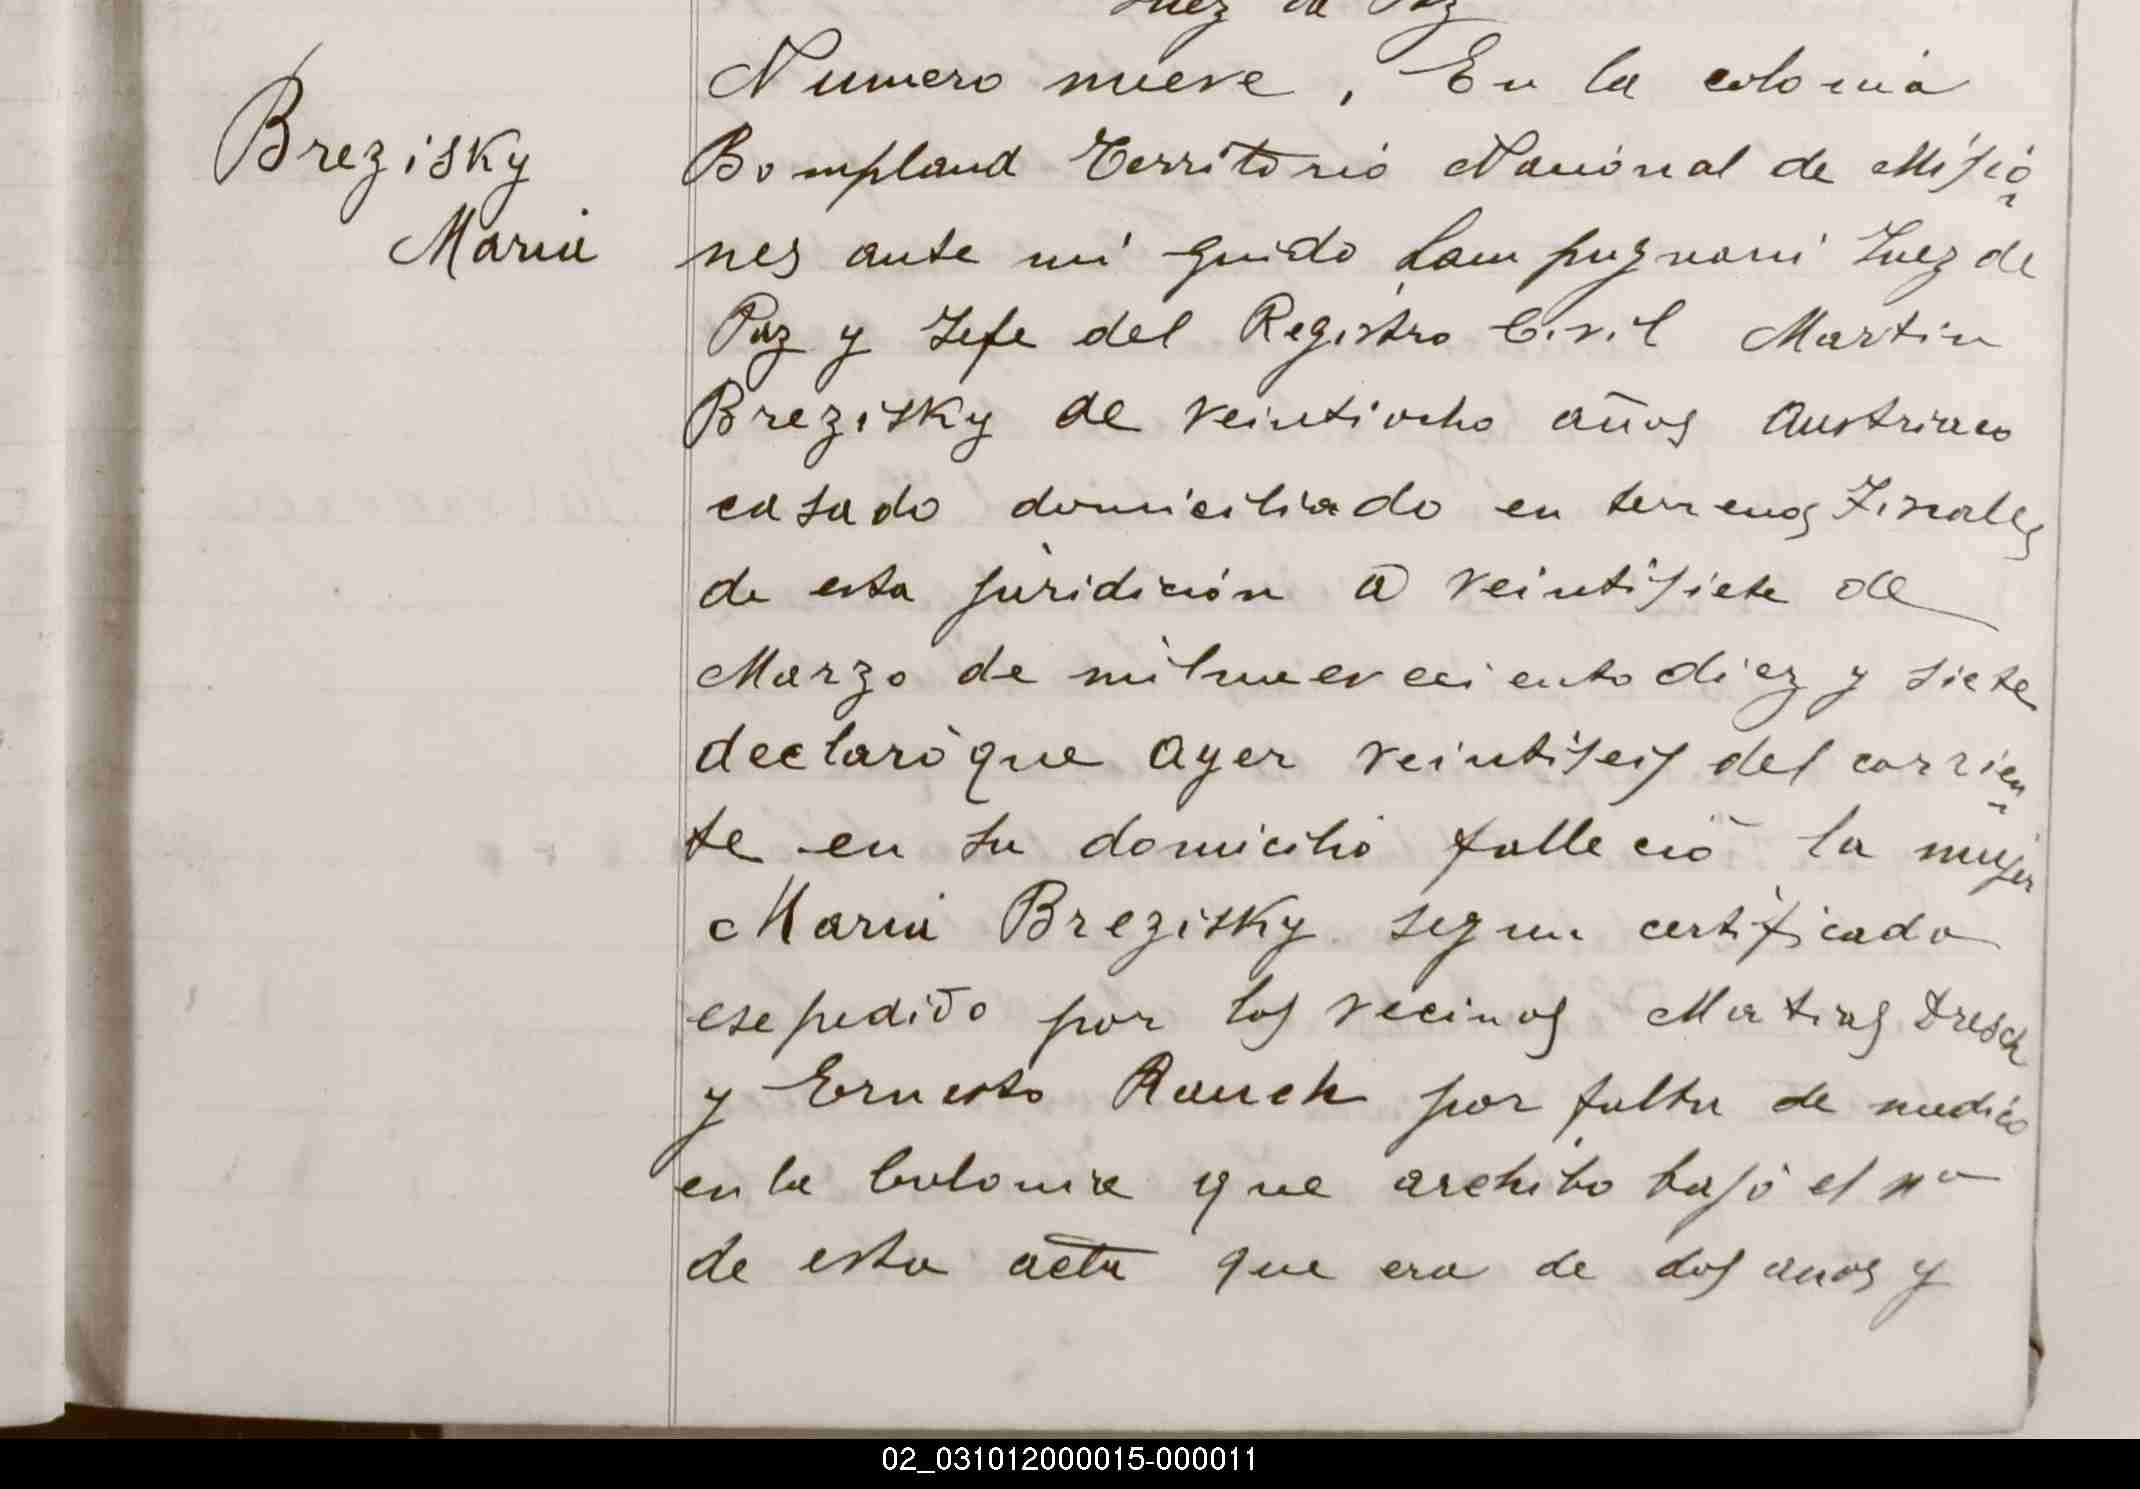 Juez de Paz
Brezisky
Maria
Numero nueve, En la colonia
Bompland Territorio Nacional de Misio
nes ante mi Guido Lampugnani Juez de
Paz y Jefe del Registro Civil Martin
Brezisky de veintiocho años Austriaco
casado domiciliado en terrenos Fiscales
de esta juridición a veintisiete de
Marzo de milnuevecciento diez y siete
declaró que ayer veintiseis del corrien
te en su domicilio falleció la mujer
Maria Brezisky segun certificado
esepedido por los vecinos Matias Dresch
y Ernesto Rauch por falta de medico
en la Colonia que archibo bajo el nº
de esta acta que era de dos anos y
02_031012000015-000011